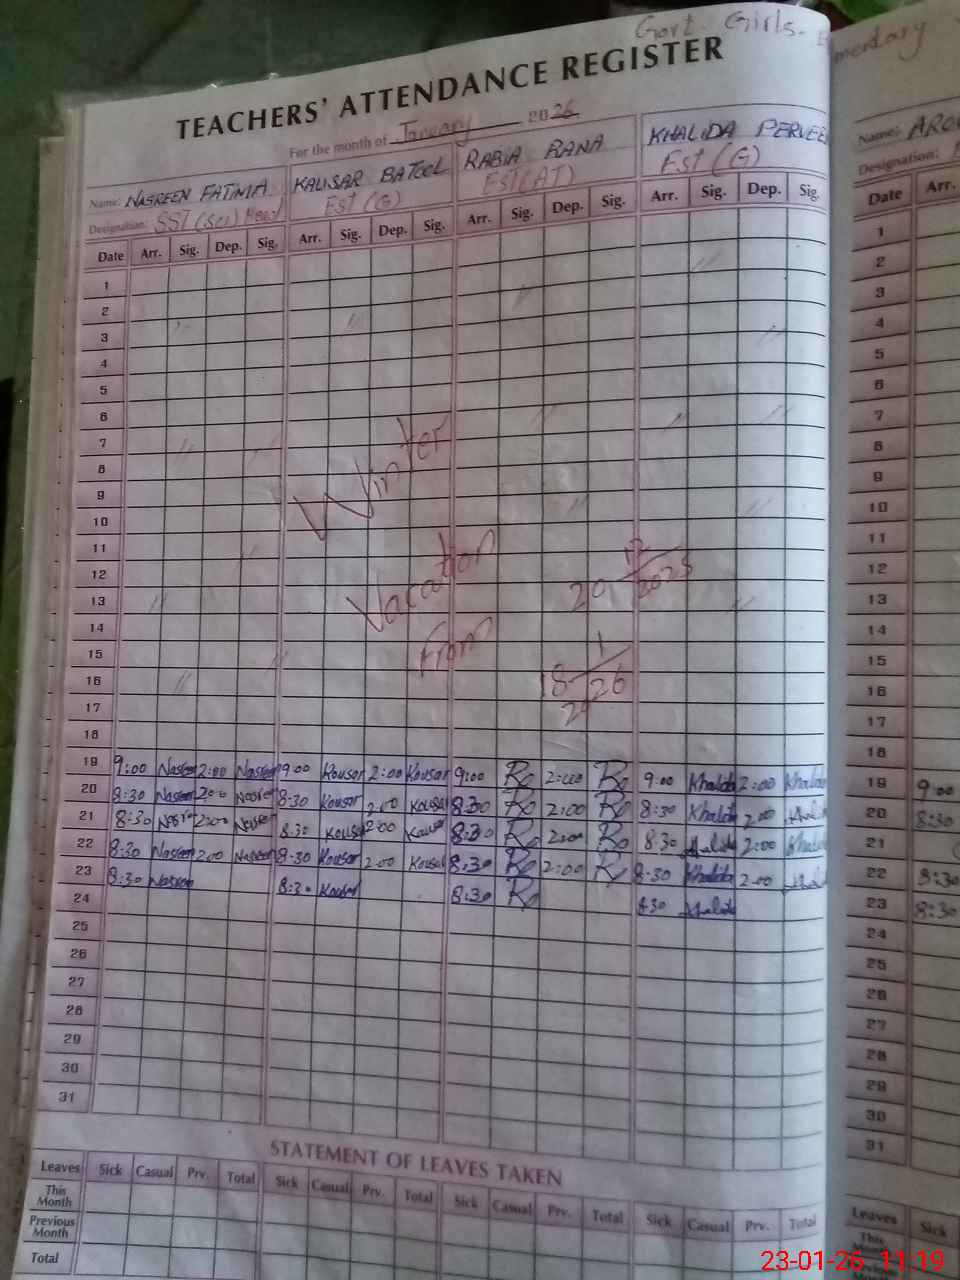 Govt. Girls. Elementary
TEACHERS' ATTENDANCE REGISTER
For the month of January 2026
Name: NASREEN FATIMA KAUSAR BATOOL RABIA RANA KHALIDA PERVEE
Designation: SST (Sci) Head EST (G) EST (AT) EST (G)
Name:
Designation:
Date Arr. Sig. Dep. Sig. Arr. Sig. Dep. Sig. Arr. Sig. Dep. Sig. Arr. Sig. Dep. Sig. Date Arr.
1 1
2 2
3 3
4 4
5 5
6 6
7 7
8 8
9 9
10 10
11 11
12 12
13 13
14 14
15 15
16 16
17 17
18 18
Winter
Vacation
From
20 12/2025
18 1/26
19 9:00 Nasreen 2:00 Nasreen 9:00 Kousar 2:00 Kousar 9:00 2:00 9:00 Khalida 2:00 Khalida 19 9:00
20 8:30 Nasreen 2:00 Nasreen 8:30 Kousar 2:00 Kousar 8:30 2:00 8:30 Khalida 2:00 Khalida 20 8:30
21 8:30 Nasreen 2:00 Nasreen 8:30 Kousar 2:00 Kousar 8:30 2:00 8:30 Khalida 2:00 Khalida 21
22 8:30 Nasreen 2:00 Nasreen 8:30 Kousar 2:00 Kousar 8:30 2:00 8:30 Khalida 2:00 Khalida 22 8:30
23 8:30 Nasreen 8:30 Kousar 8:30 8:30 Khalida 23 8:30
24 24
25 25
26 26
27 27
28 28
29 29
30 30
31 31
STATEMENT OF LEAVES TAKEN
Leaves Sick Casual Prv. Total Sick Casual Prv. Total Sick Casual Prv. Total Sick Casual Prv. Total Leaves Sick
This Month This
Previous Month Previous Month
Total
23-01-26 11:19